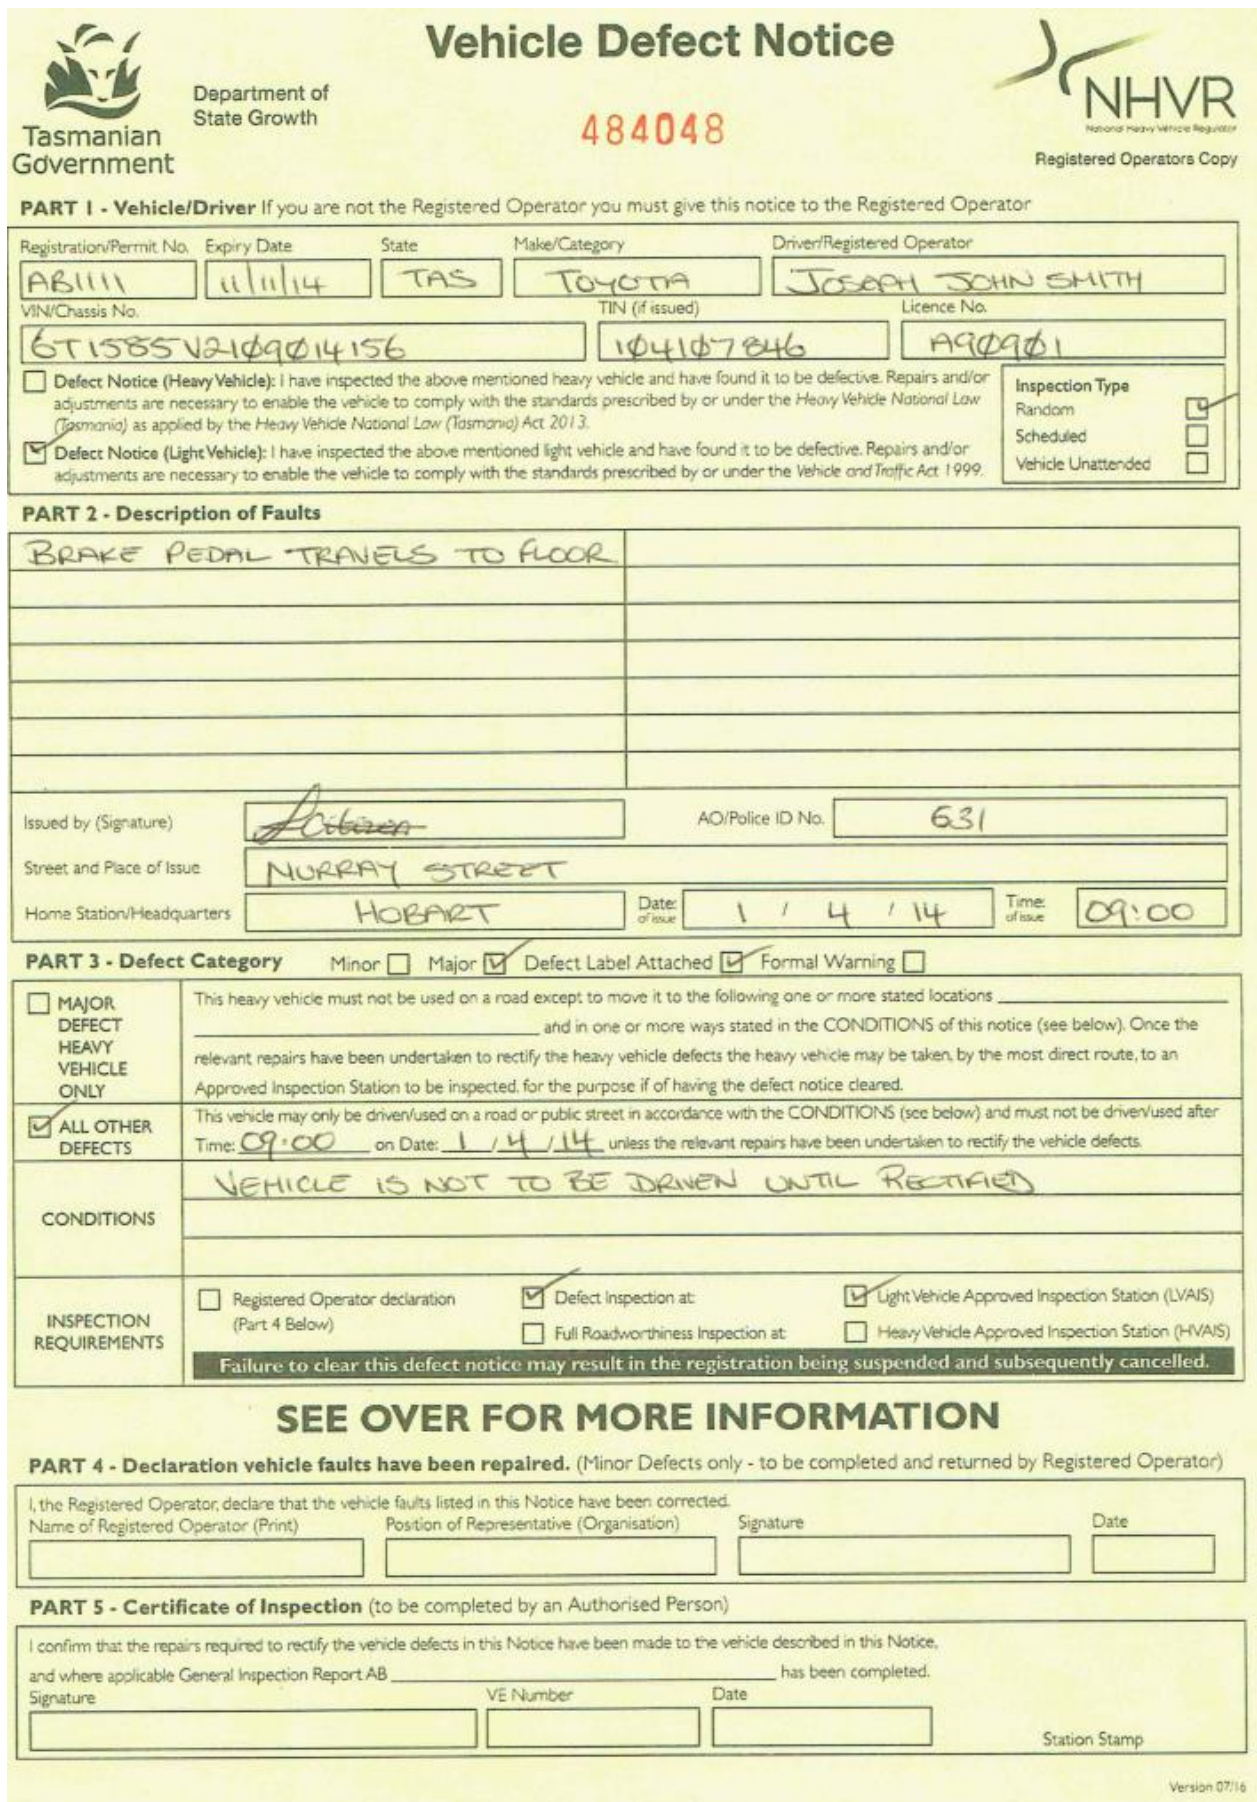 Vehicle Defect Notice
Tasmanian
Government
Department of
State Growth
484048
NHVR
National Heavy Vehicle Regulator
Registered Operators Copy
PART 1 - Vehicle/Driver If you are not the Registered Operator you must give this notice to the Registered Operator
Registration/Permit No. Expiry Date State Make/Category Driver/Registered Operator
AB1111 11/11/14 TAS TOYOTA JOSEPH JOHN SMITH
VIN/Chassis No. TIN (if issued) Licence No.
6T1585V2109014156 104107846 A90901
Defect Notice (Heavy Vehicle): I have inspected the above mentioned heavy vehicle and have found it to be defective. Repairs and/or
adjustments are necessary to enable the vehicle to comply with the standards prescribed by or under the Heavy Vehicle National Law
(Tasmania) as applied by the Heavy Vehicle National Law (Tasmania) Act 2013.
Defect Notice (Light Vehicle): I have inspected the above mentioned light vehicle and have found it to be defective. Repairs and/or
adjustments are necessary to enable the vehicle to comply with the standards prescribed by or under the Vehicle and Traffic Act 1999.
Inspection Type
Random
Scheduled
Vehicle Unattended
PART 2 - Description of Faults
BRAKE PEDAL TRAVELS TO FLOOR
Issued by (Signature) AO/Police ID No. 631
Street and Place of Issue MURRAY STREET
Home Station/Headquarters HOBART Date: of issue 1 / 4 / 14 Time: of issue 09:00
PART 3 - Defect Category Minor Major Defect Label Attached Formal Warning
MAJOR
DEFECT
HEAVY
VEHICLE
ONLY
This heavy vehicle must not be used on a road except to move it to the following one or more stated locations
and in one or more ways stated in the CONDITIONS of this notice (see below). Once the
relevant repairs have been undertaken to rectify the heavy vehicle defects the heavy vehicle may be taken, by the most direct route, to an
Approved Inspection Station to be inspected, for the purpose if of having the defect notice cleared.
ALL OTHER
DEFECTS
This vehicle may only be driven/used on a road or public street in accordance with the CONDITIONS (see below) and must not be driven/used after
Time: 09:00 on Date: 1 / 4 / 14 unless the relevant repairs have been undertaken to rectify the vehicle defects.
CONDITIONS
VEHICLE IS NOT TO BE DRIVEN UNTIL RECTIFIED
INSPECTION
REQUIREMENTS
Registered Operator declaration
(Part 4 Below)
Defect Inspection at:
Full Roadworthiness Inspection at:
Light Vehicle Approved Inspection Station (LVAIS)
Heavy Vehicle Approved Inspection Station (HVAIS)
Failure to clear this defect notice may result in the registration being suspended and subsequently cancelled.
SEE OVER FOR MORE INFORMATION
PART 4 - Declaration vehicle faults have been repaired. (Minor Defects only - to be completed and returned by Registered Operator)
I, the Registered Operator, declare that the vehicle faults listed in this Notice have been corrected.
Name of Registered Operator (Print) Position of Representative (Organisation) Signature Date
PART 5 - Certificate of Inspection (to be completed by an Authorised Person)
I confirm that the repairs required to rectify the vehicle defects in this Notice have been made to the vehicle described in this Notice,
and where applicable General Inspection Report AB has been completed.
Signature VE Number Date
Station Stamp
Version 07/16